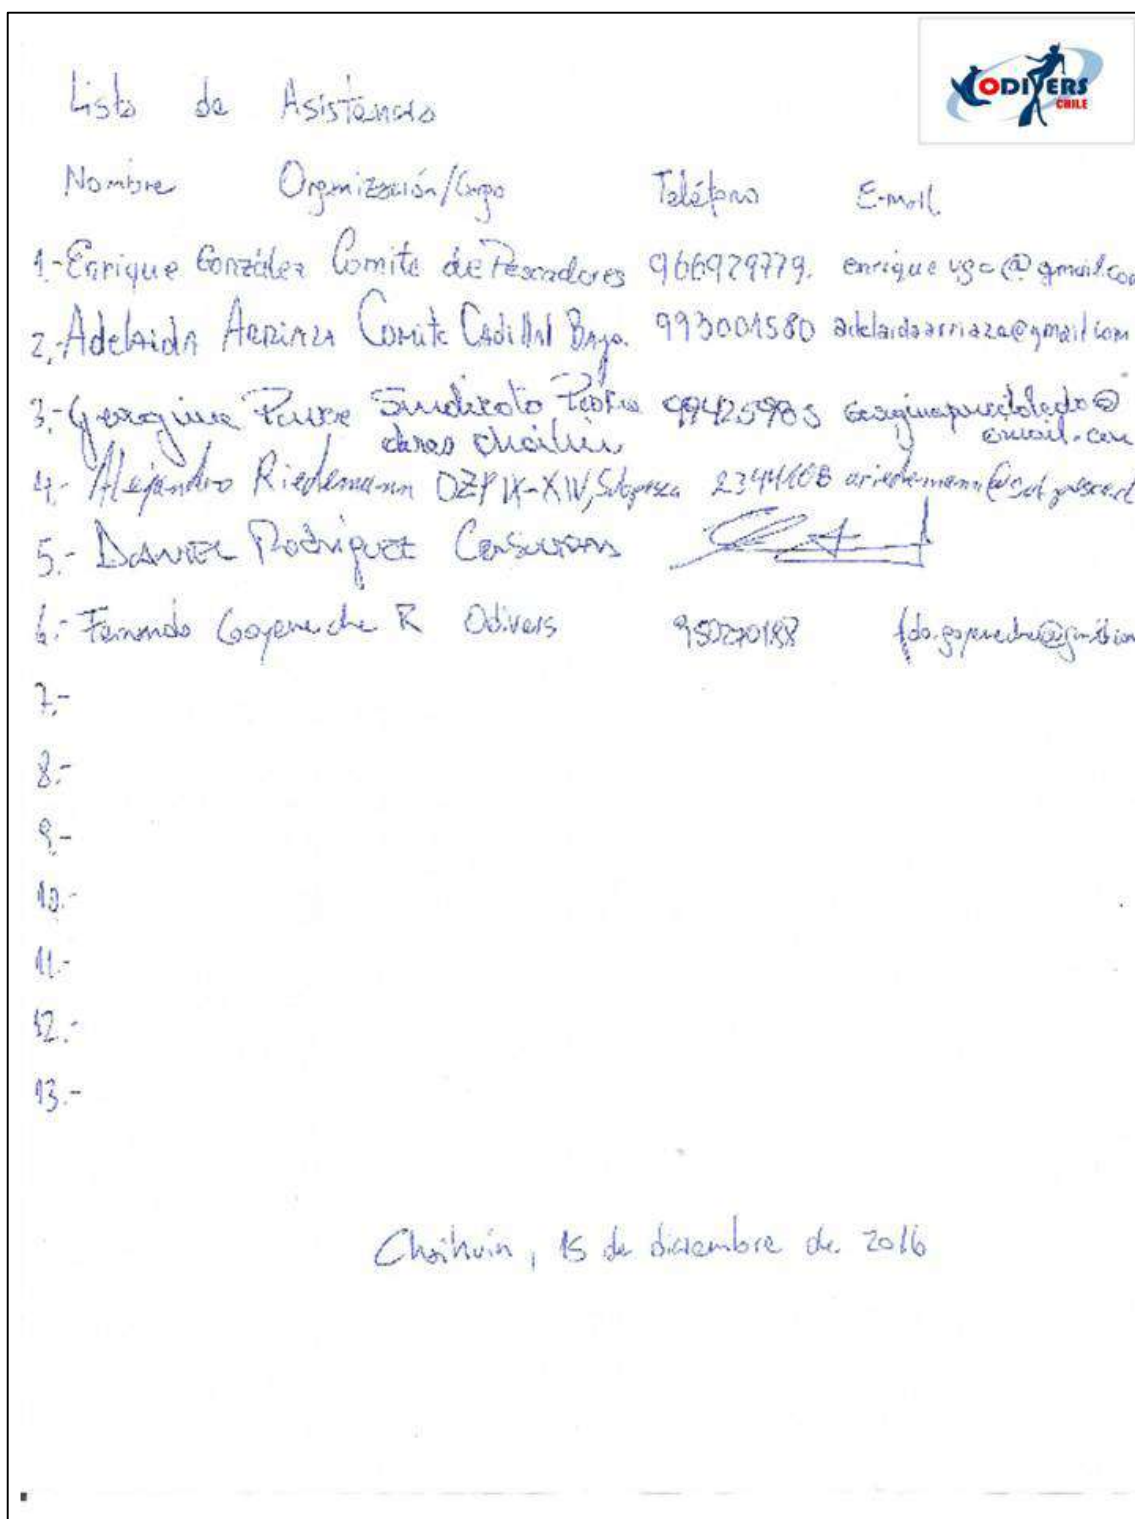 ODIVERS
CHILE
Lista de Asistencia
Nombre Organización/Cargo Teléfono E-mail
1.- Enrique González Comite de Pescadores 966929779. enrique vgc@gmail.com
2.- Adelaida Arriaza Comite Cadillal Bajo. 993001580 adelaidaarriaza@gmail.com
3.- Georgina Sindicato 99425985
@
gmail.com
4.- Alejandro Riedemann DZP IX-XIV, Subpesca ariedemann@subpesca.cl
5.- DANIEL Rodríguez
6.- Fernando Goyeneche R Odivers 950270188
7.-
8.-
9.-
10.-
11.-
12.-
13.-
Chaihuín, 15 de diciembre de 2016